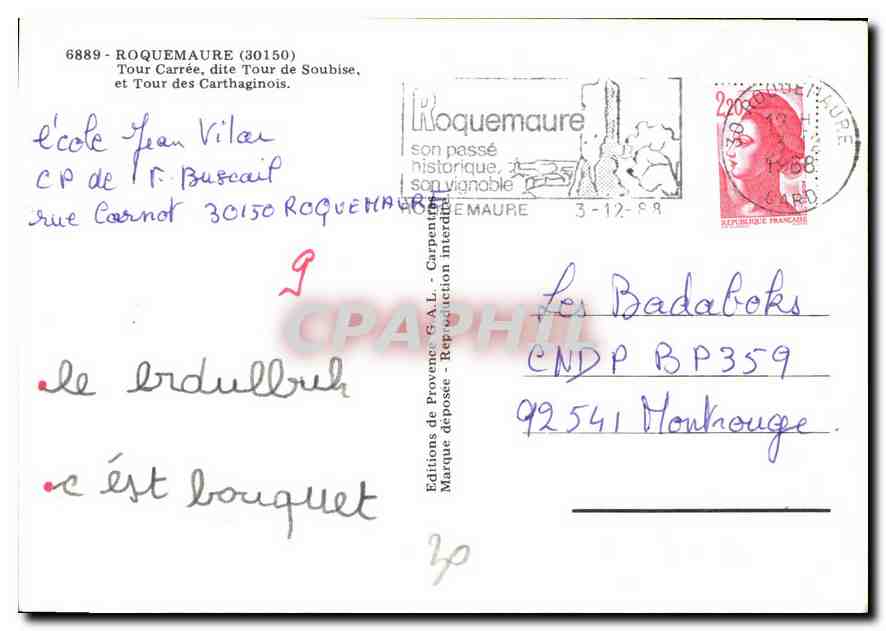 6889 - ROQUEMAURE (30150)
Tour Carrée, dite Tour de Soubise,
et Tour des Carthaginois.
école Jean Vilar
CP de M. Buscail
rue Carnot 30150 ROQUEMAURE
Roquemaure
son passé
historique,
son vignoble
ROQUEMAURE 3-12-88
2,20
30 ROQUEMAURE
1988
GARD
REPUBLIQUE FRANÇAISE
9
CPAPHIL
Les Badaboks
CNDP BP359
92541 Montrouge
le erdulbuk
c'est bouquet
30
Editions de Provence G.A.L. - Carpentras
Marque déposée - Reproduction interdite